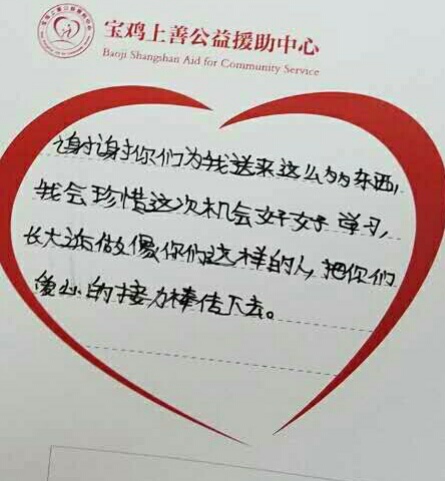 宝鸡上善公益援助中心
Baoji Shangshan Aid for Community Service
谢谢你们为我送来这么多东西,
我会珍惜这次机会好好学习,
长大后做像你们这样的人,把你们
爱心的接力棒传下去。